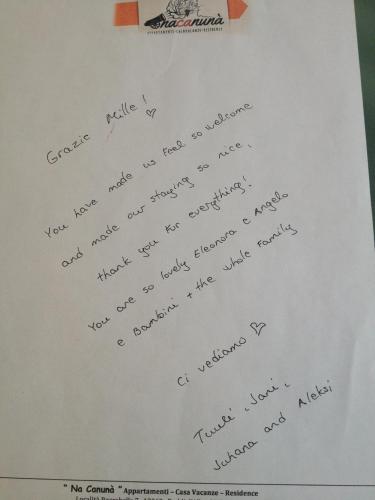 nacanunà
APPARTAMENTI-CASAVACANZE-RESIDENCE
Grazie Mille! ♡
You have made us feel so welcome
and made our staying so nice,
thank you for everything!
You are so lovely Eleonora e Angelo
e Bambini + the whole Family
Ci vediamo ♡
Tuuli, Jani,
Juhana and Aleksi
" Na Canunà " Appartamenti – Casa Vacanze – Residence
Località